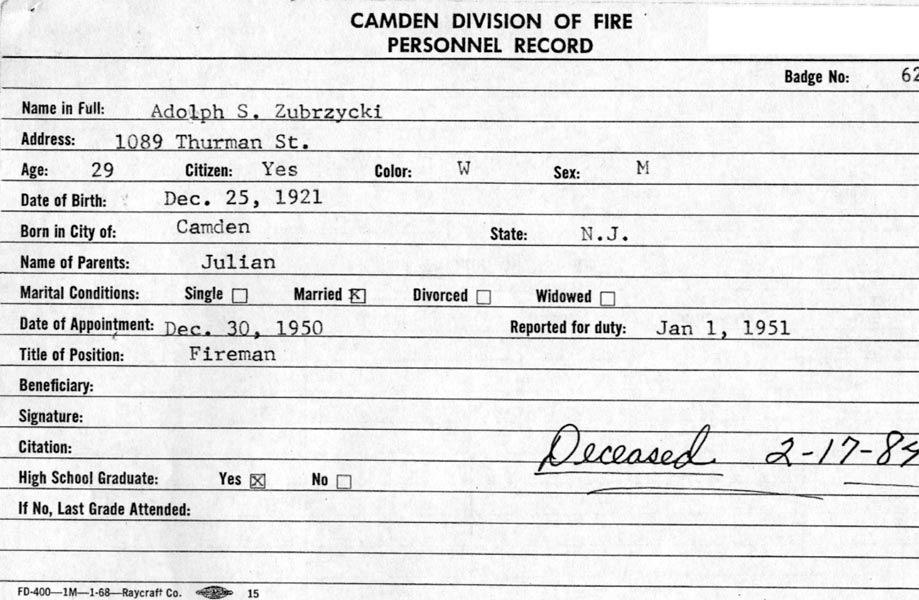 CAMDEN DIVISION OF FIRE
PERSONNEL RECORD
Badge No: 62
Name in Full: Adolph S. Zubrzycki
Address: 1089 Thurman St.
Age: 29 Citizen: Yes Color: W Sex: M
Date of Birth: Dec. 25, 1921
Born in City of: Camden State: N.J.
Name of Parents: Julian
Marital Conditions: Single ☐ Married ☒ Divorced ☐ Widowed ☐
Date of Appointment: Dec. 30, 1950 Reported for duty: Jan 1, 1951
Title of Position: Fireman
Beneficiary:
Signature:
Citation: Deceased 2-17-84
High School Graduate: Yes ☒ No ☐
If No, Last Grade Attended:
FD-400—1M—1-68—Raycraft Co. 15